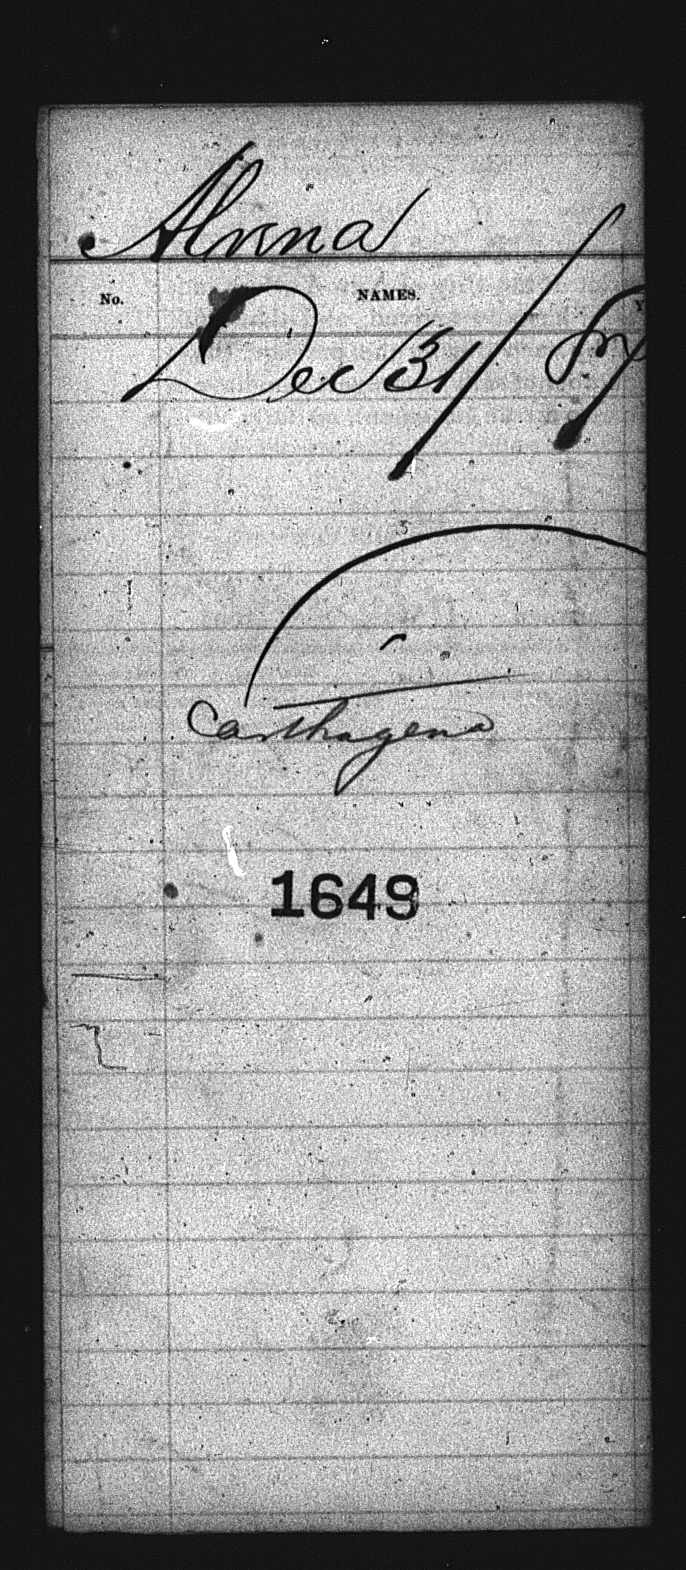 Alvena
No. NAMES. Y
Dec 31/87
3
Carthagena
1649